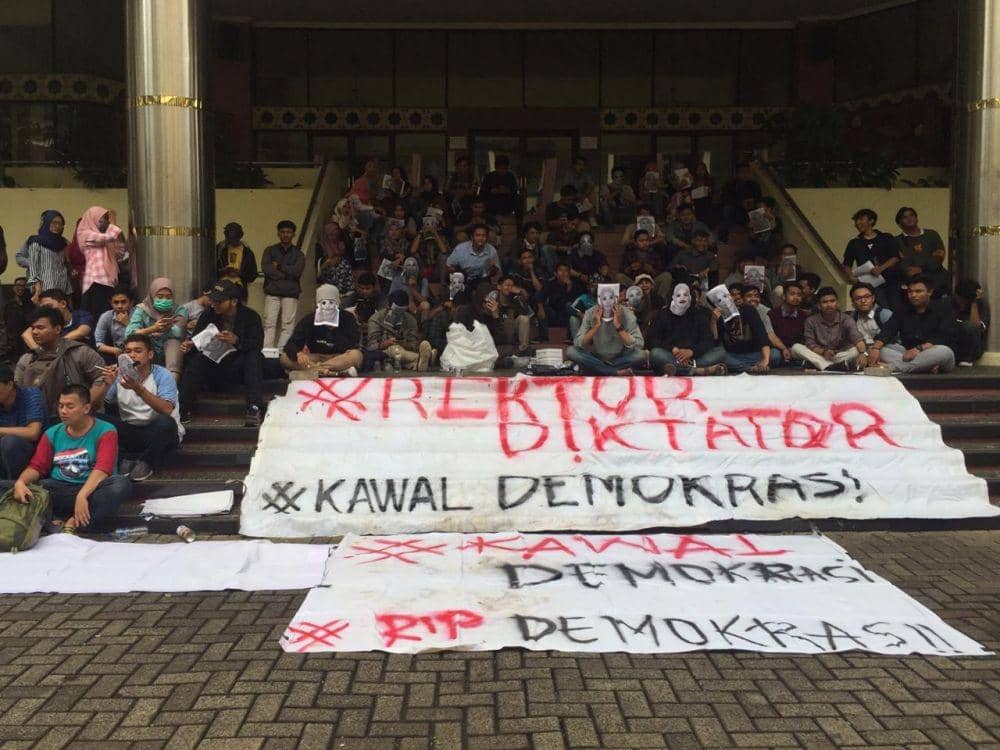 #REKTOR
DIKTATOR
#KAWAL DEMOKRASI!
#KAWAL
DEMOKRASI
#RIP DEMOKRASI!!